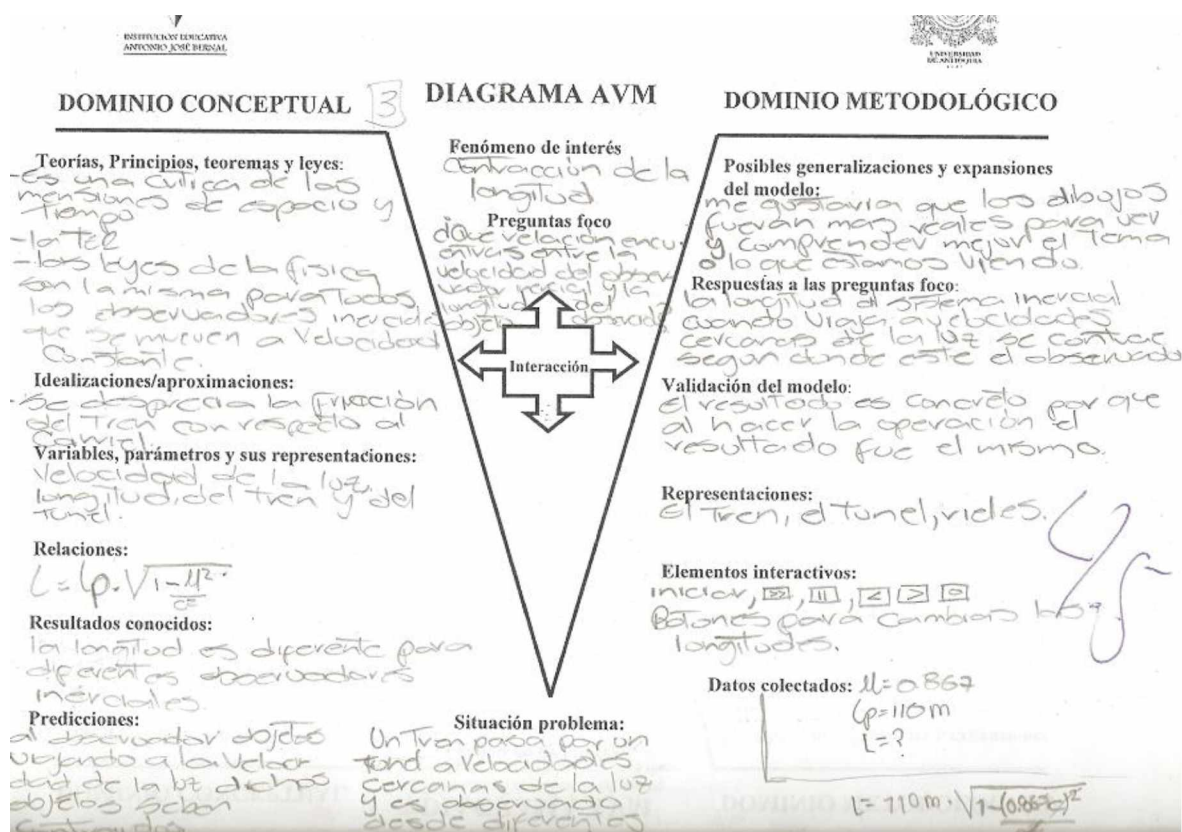 INSTITUCIÓN EDUCATIVA
ANTONIO JOSÉ BERNAL
UNIVERSIDAD
DE ANTIOQUIA
DIAGRAMA AVM
DOMINIO CONCEPTUAL 3
Teorías, Principios, teoremas y leyes:
- Es una crítica de las
mensiones de espacio y
tiempo
- la TER
- las leyes de la física
son la misma para todos
los observadores inercial
que se mueven a velocidad
constante.
Idealizaciones/aproximaciones:
- se desprecia la fricción
del tren con respecto al
carril.
Variables, parámetros y sus representaciones:
Velocidad de la luz,
longitud, del tren y del
tunel.
Relaciones:
L = Lp · √1-μ²/c²
Resultados conocidos:
la longitud es diferente para
diferentes observadores
inerciales.
Predicciones:
al observador objetos
viajando a la veloci
dad de la luz dichos
objetos seban
Fenómeno de interés
Contracción de la
longitud
Preguntas foco
¿Que relación encu
entras entre la
velocidad del obser
vador inercial y la
longitud del
objeto observado
Interacción
Situación problema:
Un Tren pasa por un
tunel a velocidades
cercanas de la luz
y es observado
desde diferentes
DOMINIO METODOLÓGICO
Posibles generalizaciones y expansiones
del modelo:
me gustaria que los dibujos
fueran mas reales para ver
y comprender mejor el tema
o lo que estamos viendo.
Respuestas a las preguntas foco:
la longitud al sistema inercial
cuando viaja a velocidades
cercanas de la luz se contrae
segun donde este el observado
Validación del modelo:
el resultado es concreto por que
al hacer la operación el
resultado fue el mismo.
Representaciones:
El Tren, el tunel, rieles.
4/5
Elementos interactivos:
iniciar,
Botones para cambiar las
longitudes.
Datos colectados: μ=0.867
Lp=110m
L=?
L=110m·√1-(0.867c)²